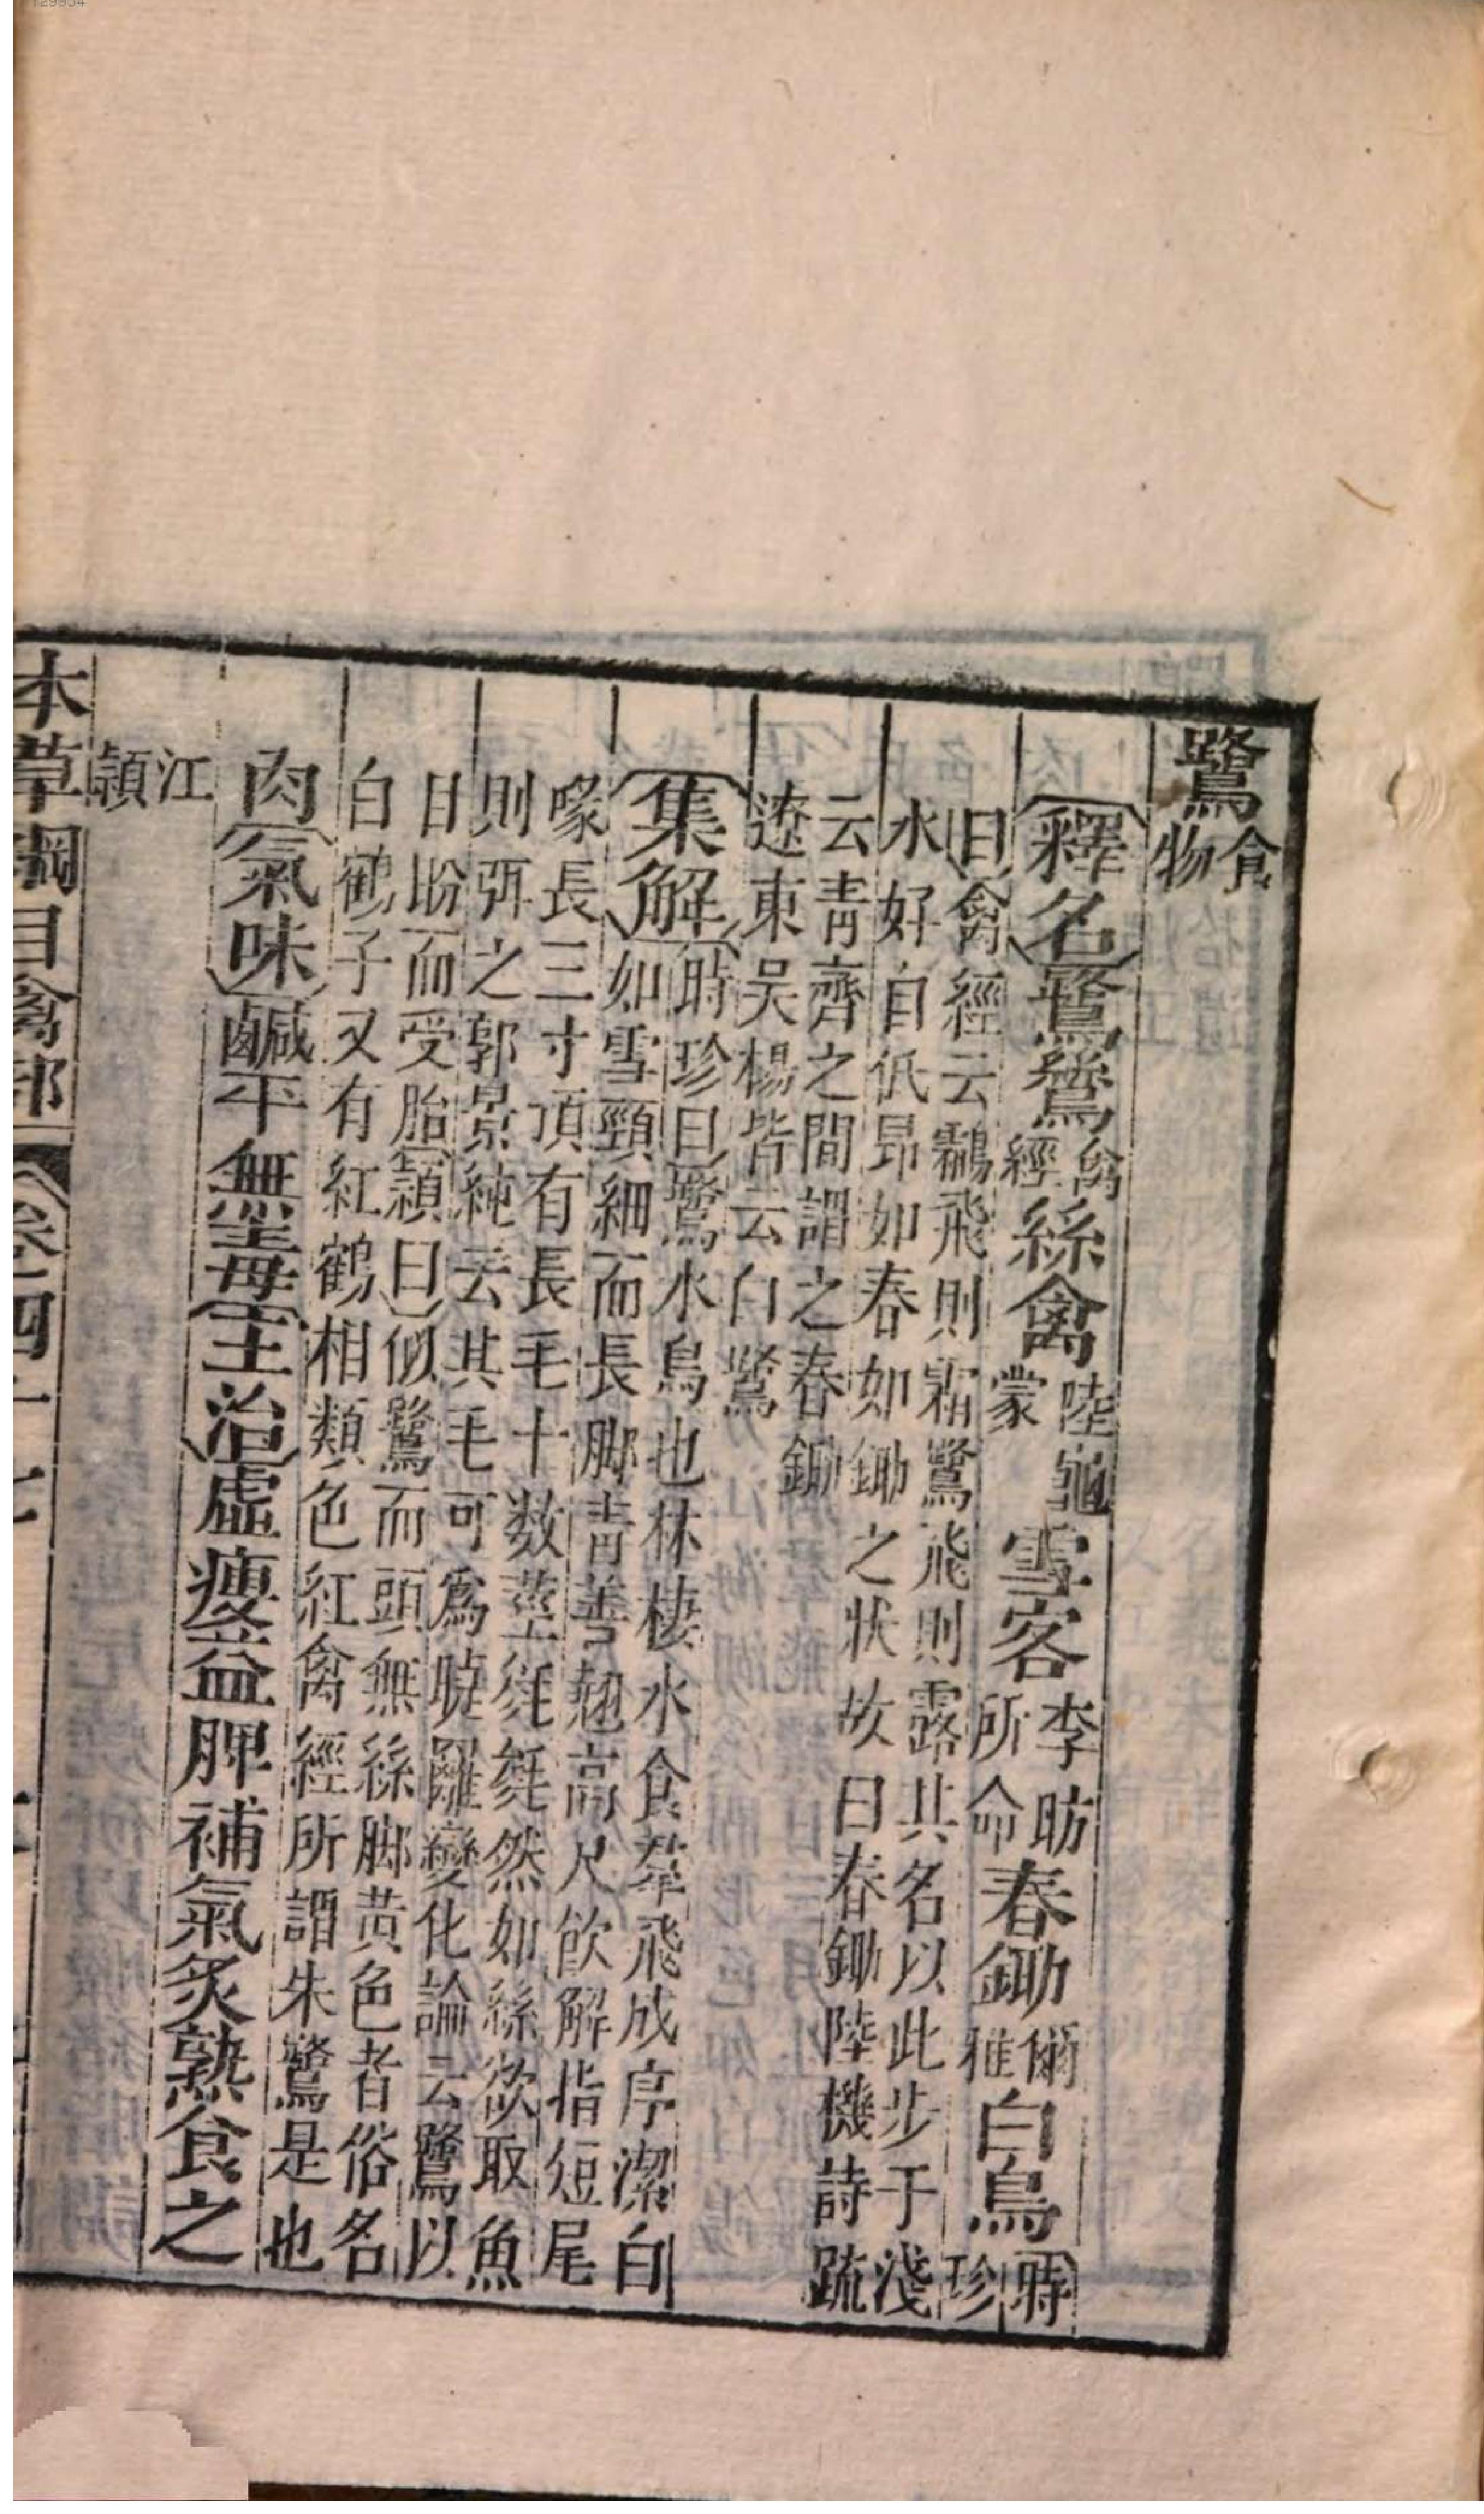 鷺食物
〔釋名〕鷺鷥禽經絲禽陸龜蒙雪客李昉所命舂鋤爾雅白鳥〔時珍
曰〕禽經云鸘飛則霜鷺飛則露其名以此步于淺
水好自低昂如舂如鋤之狀故曰舂鋤陸機詩疏
云青齊之間謂之舂鋤
遼東吳楊皆云白鷺
〔集解〕〔時珍曰〕鷺水鳥也林棲水食羣飛成序潔白
如雪頸細而長脚青善翹高尺飲解指短尾
喙長三寸頂有長毛十數莖毿毿然如絲欲取魚
則弭之郭景純云其毛可爲睫䍦變化論云鷺以
目盼而受胎〔穎曰〕似鷺而頭無絲脚黃色者俗名
白鶴子又有紅鶴相類色紅禽經所謂朱鷺是也
肉〔氣味〕鹹平無毒〔主治〕虛瘦益脾補氣炙熟食之
江穎
本草綱目禽部 卷四十七